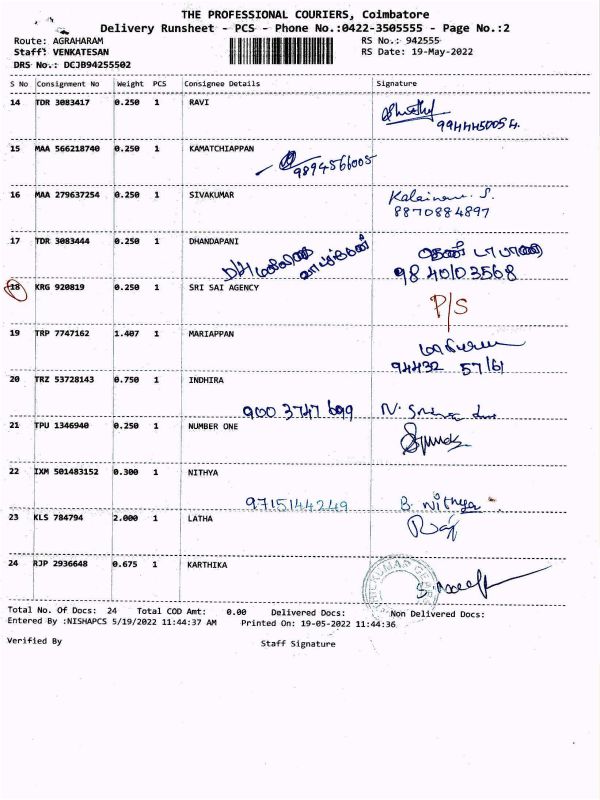 THE PROFESSIONAL COURIERS, Coimbatore
Delivery Runsheet - PCS - Phone No.:0422-3505555 - Page No.:2
Route: AGRAHARAM RS No.: 942555
Staff: VENKATESAN RS Date: 19-May-2022
DRS No.: DCJB94255502
S No Consignment No Weight PCS Consignee Details Signature
14 TDR 3083417 0.250 1 RAVI
9944450054.
15 MAA 566218740 0.250 1 KAMATCHIAPPAN
9894566005
16 MAA 279637254 0.250 1 SIVAKUMAR
8870884897
17 TDR 3083444 0.250 1 DHANDAPANI
9840103568
18 KRG 920819 0.250 1 SRI SAI AGENCY
P/S
19 TRP 7747162 1.407 1 MARIAPPAN
94432 57161
20 TRZ 53728143 0.750 1 INDHIRA
900 3747 699
21 TPU 1346940 0.250 1 NUMBER ONE
22 IXM 501483152 0.300 1 NITHYA
9715144249 B. Nithya
23 KLS 784794 2.000 1 LATHA
Raj
24 RJP 2936648 0.675 1 KARTHIKA
Total No. Of Docs: 24 Total COD Amt: 0.00 Delivered Docs: Non Delivered Docs:
Entered By :NISHAPCS 5/19/2022 11:44:37 AM Printed On: 19-05-2022 11:44:36
Verified By Staff Signature